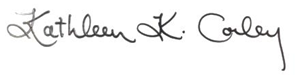 Kathleen K. Corley